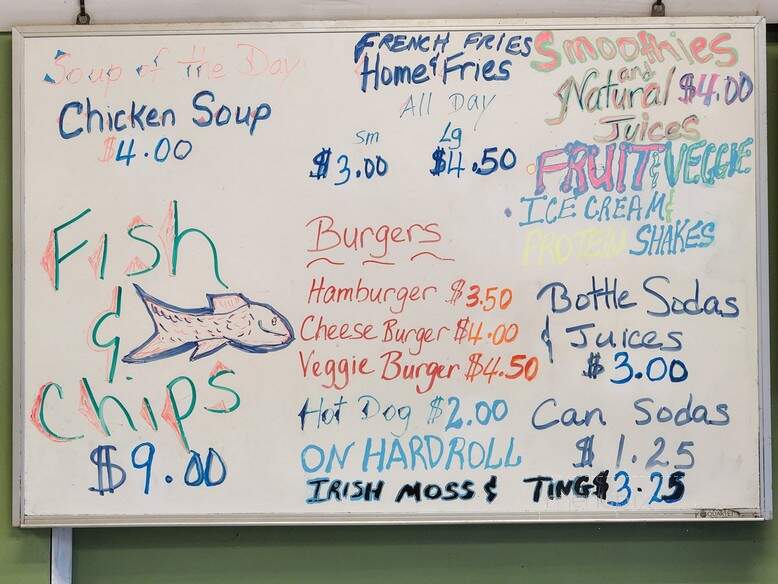 Soup of the Day
Chicken Soup
$4.00
Fish
&
Chips
$9.00
FRENCH FRIES
Home & Fries
All Day
sm Lg
$3.00 $4.50
Burgers
Hamburger $3.50
Cheese Burger $4.00
Veggie Burger $4.50
Hot Dog $2.00
ON HARDROLL
IRISH MOSS & TING $3.25
Smoothies
and
Natural $4.00
Juices
• FRUIT & VEGGIE
• ICE CREAM &
PROTEIN SHAKES
Bottle Sodas
& Juices
$3.00
Can Sodas
$1.25
QUARTET